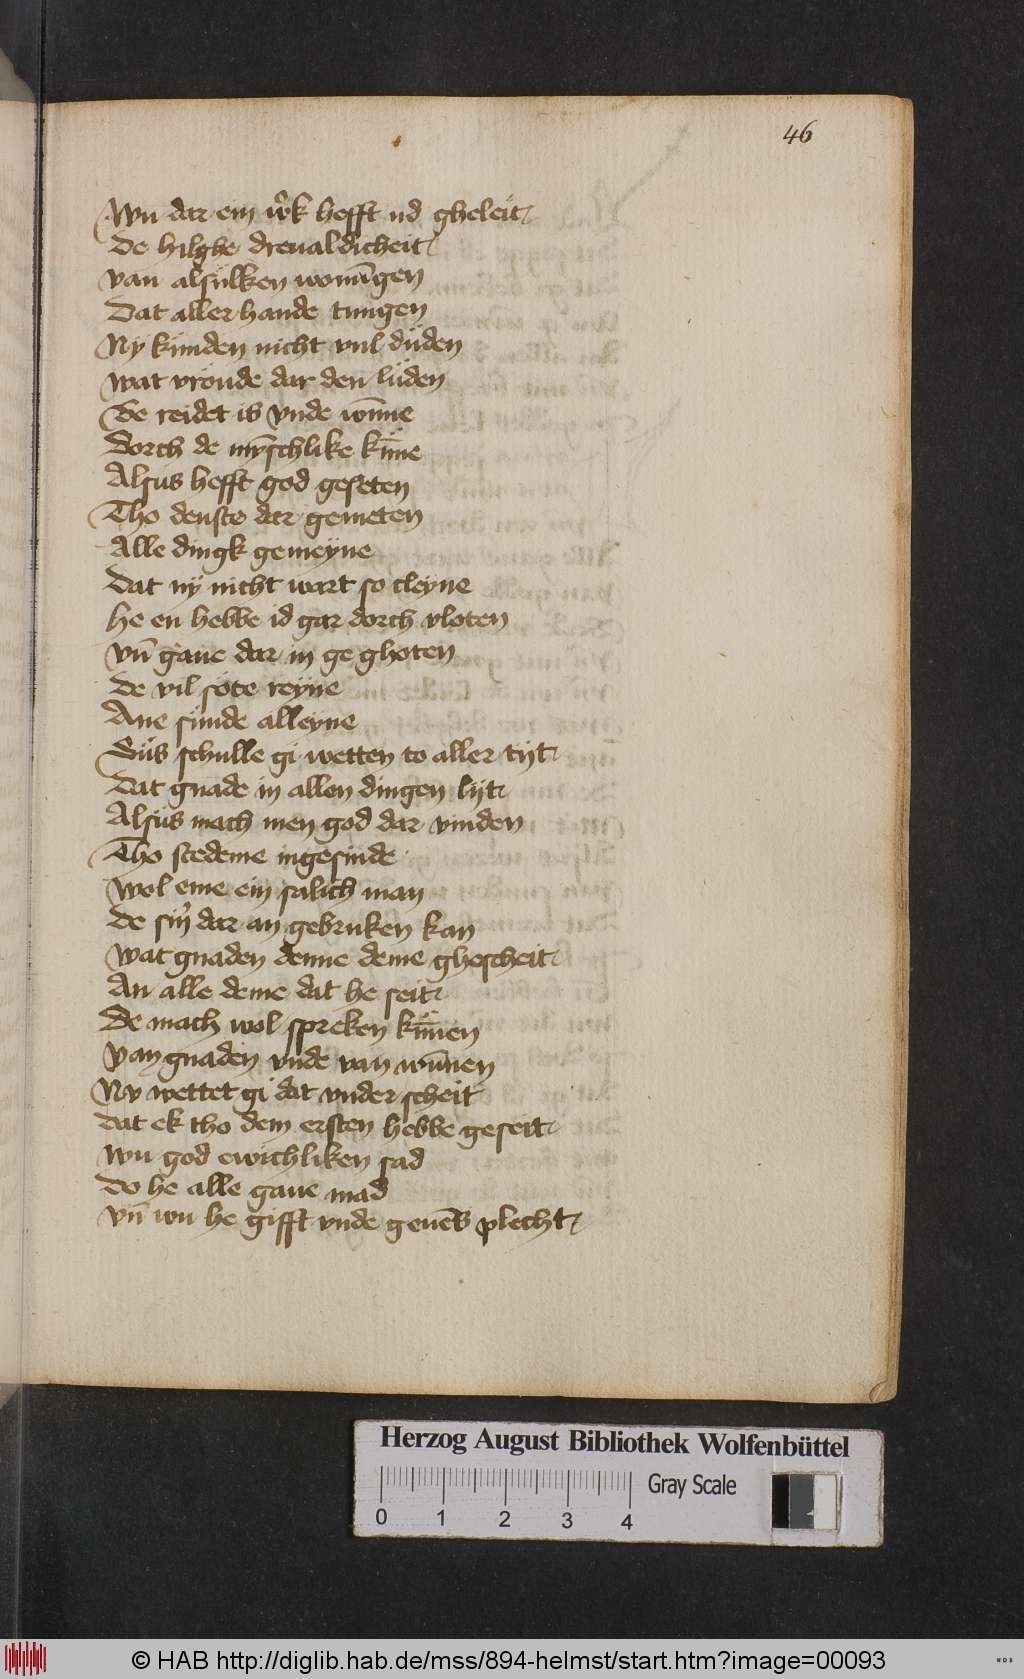 46
Wu dar ein w̉k hefft ud gheleit
De hilghe dreualdicheit
van alsulken woningen
Dat aller hande tungen
Ny kunden nicht vul düden
Wat vroude dar den lüden
Be reidet is vnde wu̅ne
Dorch de mȳschlike ku̅ne
Alsus hefft god geseten
Tho denste dar gemeten
Alle dingk gemeyne
Dat ny nicht wart so cleyne
he en hebbe id gar dorch vloten
vn̄ gaue dar in ge ghoten
De vil söte reyne
Ane sunde alleyne
Süs schulle gi wetten to aller tijt
Dat gnade in allen dingen lijt
Alsüs mach men god dar vinden
Tho stedeme ingesinde
Wol eme ein salich man
De sin̉ dar an gebruken kan
Wat gnaden denne deme ghescheit
An alle deme dat he seit
De mach wol spreken ku̅nen
Van gnaden vnde van wu̅nen
Nv wettet gi dat vnder scheit
Dat ek tho dem ersten hebbe geseit
Wu god ewichliken sad
Do he alle gaue mad
vn̄ wu he gifft vnde geue̅s plecht
Herzog August Bibliothek Wolfenbüttel
Gray Scale
0 1 2 3 4
© HAB http://diglib.hab.de/mss/894-helmst/start.htm?image=00093